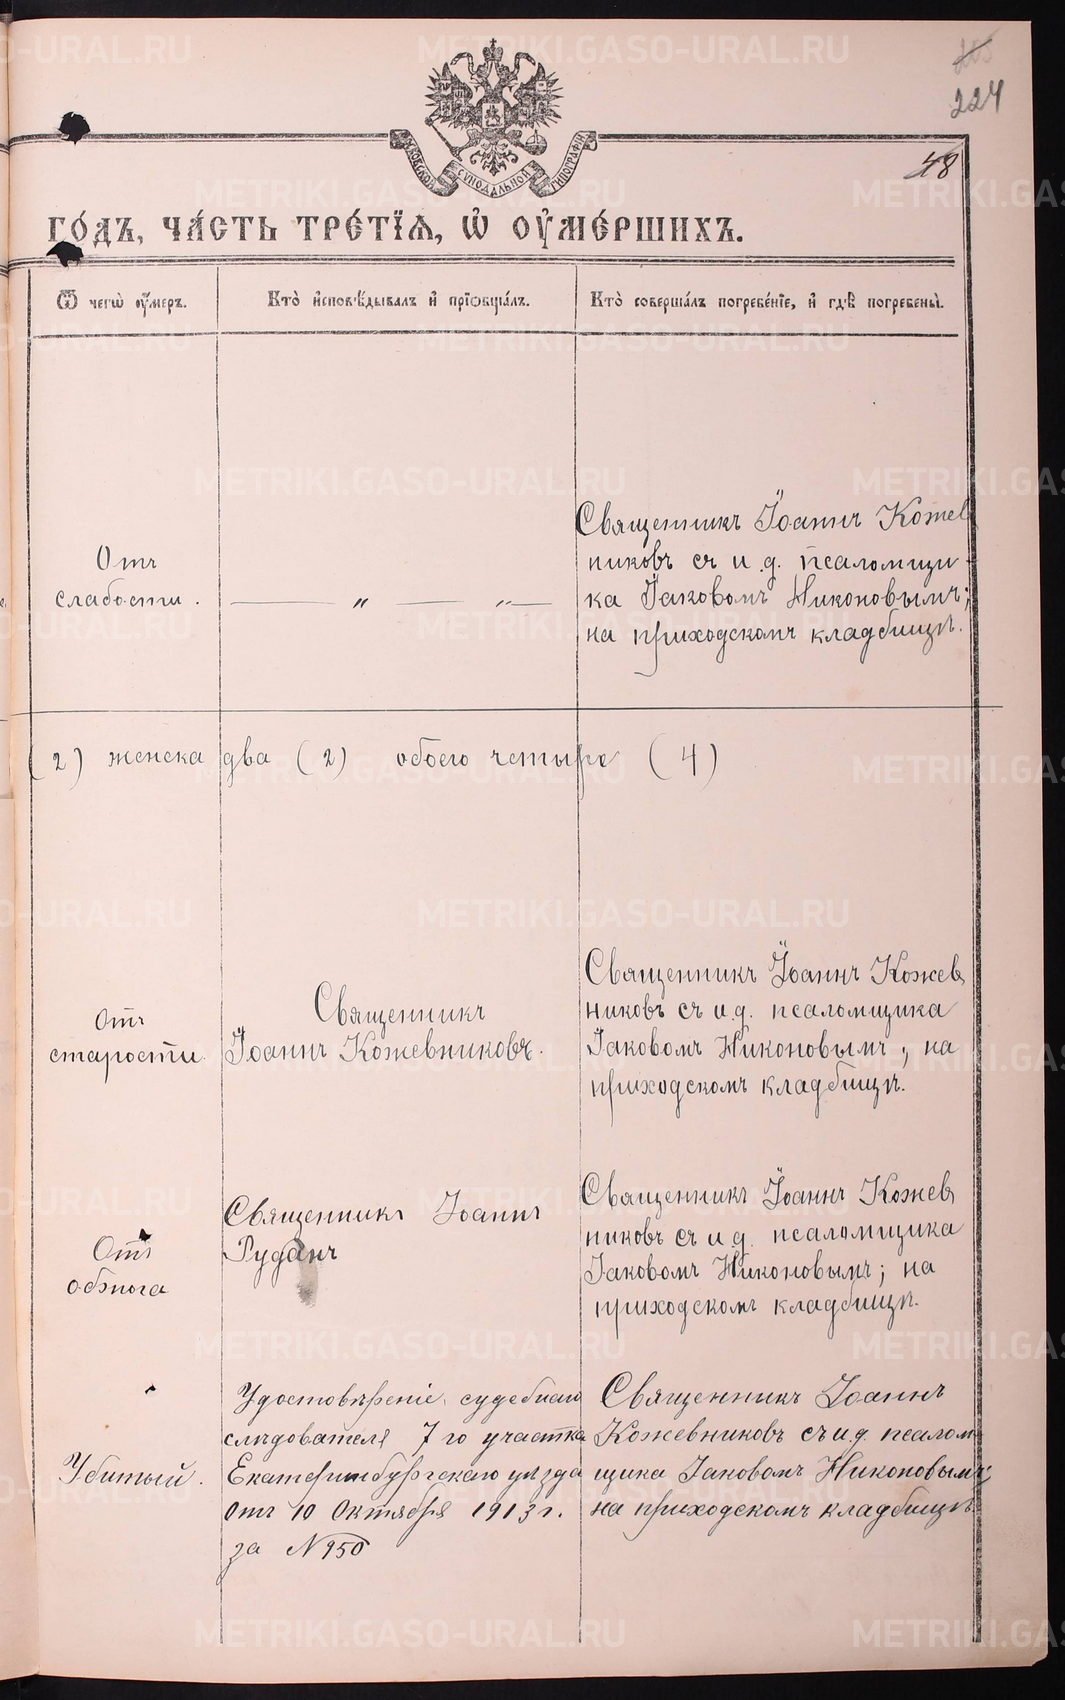 224
48
МОСКОВСКОЙ СѴНОДАЛЬНОЙ ТИПОГРАФІИ
го́дъ, ча́сть тре́тїѧ, ѡ҆ оу҆ме́ршихъ.
Ѿ чегѡ̀ оу҆́меръ.
Кто̀ и҆сповѣ́дывалъ и҆ прїѡбща́лъ.
Кто̀ соверша́лъ погребе́нїе, и҆ гдѣ̀ погребены̀.
Отъ
слабости.
— " — " —
Священникъ Іоаннъ Кожев
никовъ съ и.д. псаломщи-
ка Іаковомъ Никоновымъ;
на приходскомъ кладбищѣ.
(2) женска два (2) обоего четыре (4)
Отъ
старости.
Священникъ
Іоаннъ Кожевниковъ.
Священникъ Іоаннъ Кожев
никовъ съ и.д. псаломщика
Іаковомъ Никоновымъ, на
приходскомъ кладбищѣ.
Отъ
обжога
Священникъ Іоаннъ
Руданъ
Священникъ Іоаннъ Кожев
никовъ съ и.д. псаломщика
Іаковомъ Никоновымъ; на
приходскомъ кладбищѣ.
Убитый.
Удостовѣреніе судебнаго
слѣдователя 7 го участка
Екатеринбургскаго уѣзда
отъ 10 Октября 1913 г.
за № 950
Священникъ Іоаннъ
Кожевниковъ съ и.д. псалом
щика Іаковомъ Никоновымъ;
на приходскомъ кладбищѣ.
METRIKI.GASO-URAL.RU